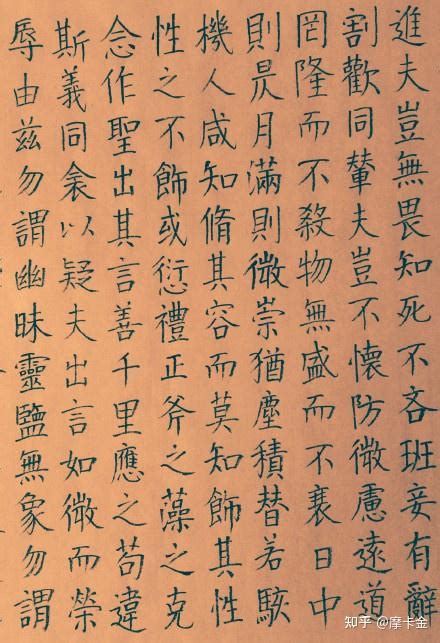 進夫豈無畏知死不吝班妾有辭
割歡同輦夫豈不懷防微慮遠道
罔隆而不殺物無盛而不衰日中
則昃月滿則微崇猶塵積替若駭
機人咸知脩其容而莫知飾其性
性之不飾或愆禮正斧之藻之克
念作聖出其言善千里應之苟違
斯義同衾以疑夫出言如微而榮
辱由茲勿謂幽昧靈監無象勿謂
知乎 @摩卡金